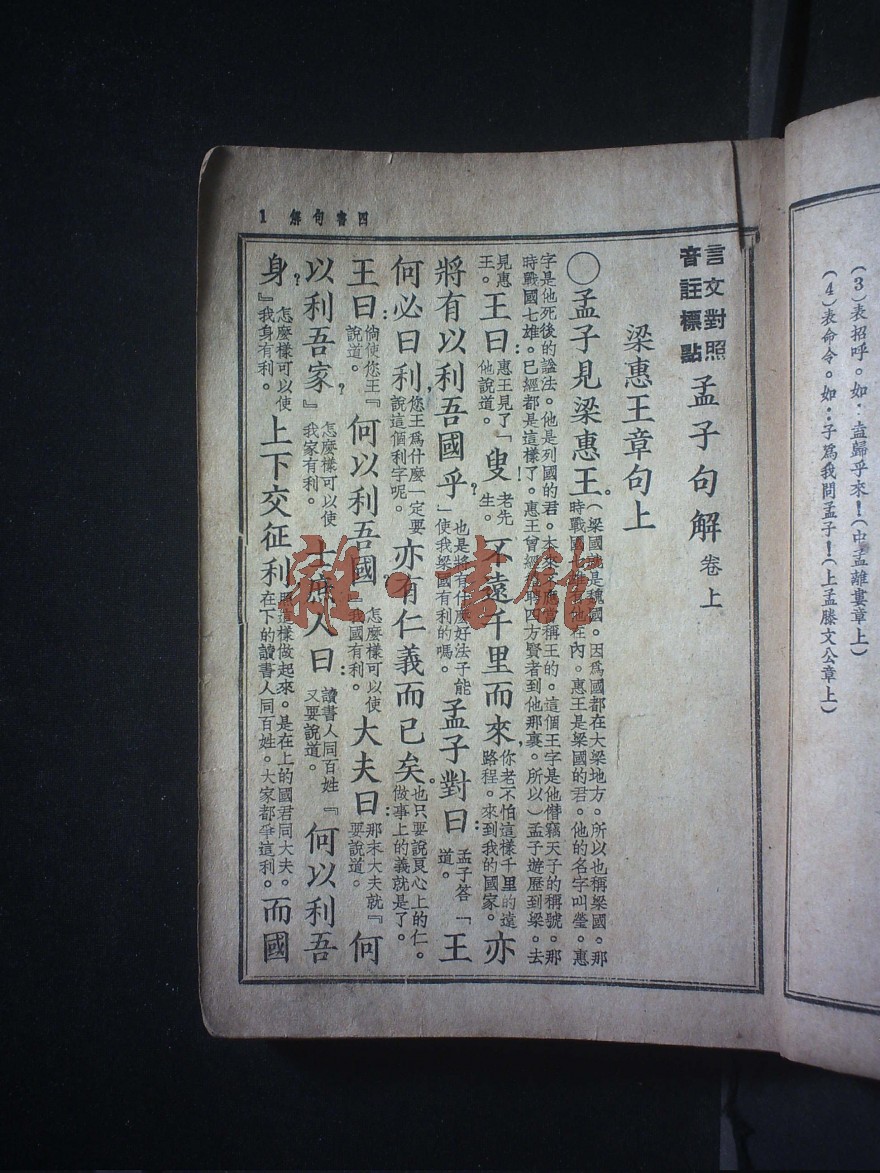 (3)表招呼。如：盍歸乎來！(中孟離婁章上)
(4)表命令。如：子爲我問孟子！(上孟滕文公章上)
四書句解 1
言文對照
音註標點
孟子句解 卷上
梁惠王章句上
〇孟子見梁惠王。(梁國就是魏國。因爲國都在大梁地方。所以也稱梁國。那時戰國七雄他在內。惠王是梁國的君。他的名字叫瑩。惠
字是他死後的諡法。他是列國的君。本來不應當稱王的。這個王字是他僭竊天子的稱號。那時戰國七雄。已經都是這樣了。惠王曾經聘四方賢者到他那裏。所以)孟子遊歷到梁。去
見惠王。王曰：惠王見了他說道。「叟！老先生。不遠千里而來，你老不怕這樣千里的遠路程。來到我的國家。亦
將有以利吾國乎？」也是將有什麼好法子能使我梁國有利的嗎。孟子對曰：孟子答道。「王
何必曰利，您王爲什麼一定要說這個利字呢。亦有仁義而已矣。也只要說良心上的仁。做事上的義就是了。
王曰：倘使您王說道。『何以利吾國？』怎麼樣可以使我國有利。大夫曰：那末大夫就要說道。『何
以利吾家？』怎麼樣可以使我家有利。士庶人曰：讀書人同百姓又要說道。『何以利吾
身？』怎麼樣可以使我身有利。上下交征利，照這樣做起來。是在上的國君同大夫。在下的讀書人同百姓。大家都爭這利。而國
雜·書館